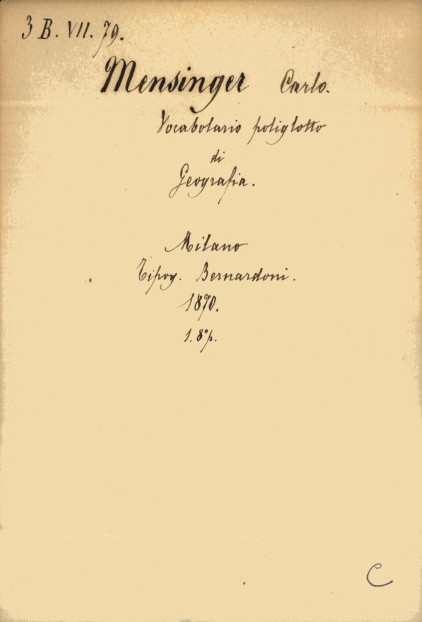 3 B. VII. 79.
Mensinger Carlo.
Vocabolario poliglotto
di
Geografia.
Milano
Tipog. Bernardoni.
1870.
1. 8° p.
C